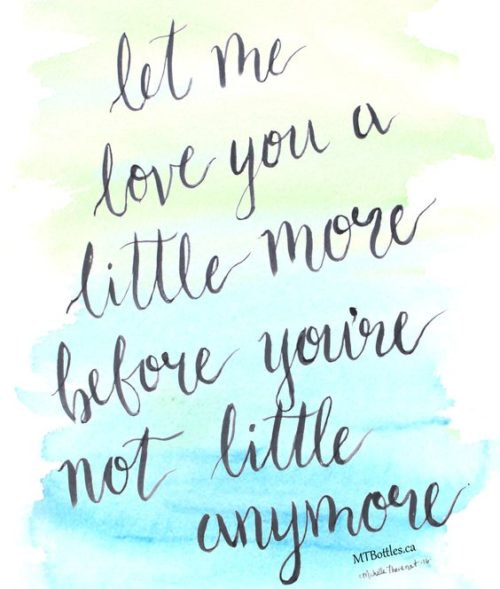 let me
love you a
little more
before you're
not little
anymore
MTBottles.ca
Michelle Thevenot '16